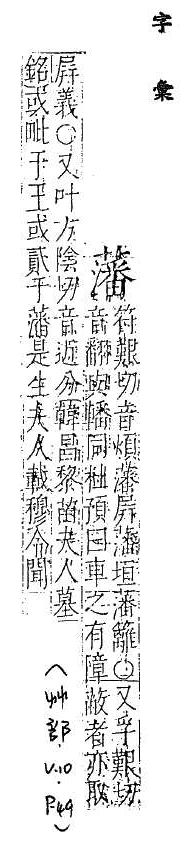 字彙
藩
符艱切音煩藩屏藩垣藩籬○又孚艱切
音翻與轓同秈預曰車之有障蔽者亦取
屏義○又叶方陰切音近分韓昌黎苗夫人墓
銘或毗于王或貳于藩是生夫人載穆令聞
(艸部.V.10.P.49)